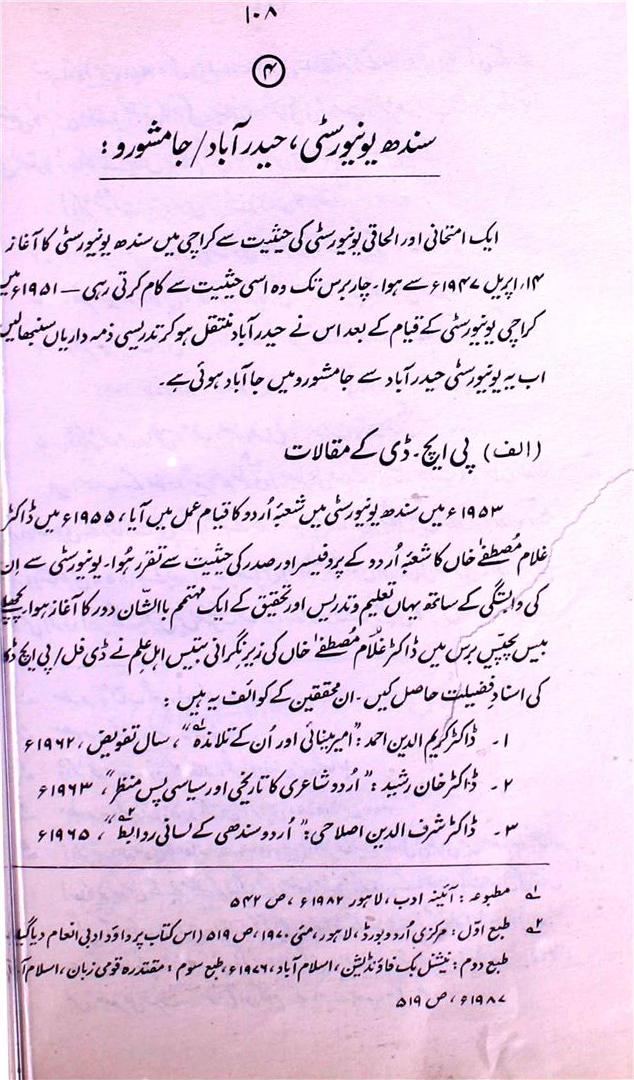 ۱۰۸
۴
سندھ یونیورسٹی، حیدر آباد/جامشورو:
ایک امتحانی اور الحاقی یونیورسٹی کی حیثیت سے کراچی میں سندھ یونیورسٹی کا آغاز
۱۴؍ اپریل ۱۹۴۷ء سے ہوا۔ چار برس تک وہ اسی حیثیت سے کام کرتی رہی — ۱۹۵۱ء میں
کراچی یونیورسٹی کے قیام کے بعد اس نے حیدر آباد منتقل ہو کر تدریسی ذمہ داریاں سنبھالیں
اب یہ یونیورسٹی حیدر آباد سے جامشورو میں جا آباد ہوئی ہے۔
(الف) پی ایچ۔ ڈی کے مقالات
۱۹۵۳ء میں سندھ یونیورسٹی میں شعبۂ اُردو کا قیام عمل میں آیا، ۱۹۵۵ء میں ڈاکٹر
غلام مصطفےٰ خاں کا شعبۂ اُردو کے پروفیسر اور صدر کی حیثیت سے تقرر ہُوا۔ یونیورسٹی سے اِن
کی وابستگی کے ساتھ یہاں تعلیم و تدریس اور تحقیق کے ایک مہتمم باالشّان دور کا آغاز ہوا۔ پچھلے
بیس پچیس برس میں ڈاکٹر غلام مُصطفےٰ خاں کی زیر نگرانی بتیس اہلِ علم نے ڈی فل/پی ایچ ڈی
کی اسنادِ فضیلت حاصل کیں۔ ان محققین کے کوائف یہ ہیں:
۱۔ ڈاکٹر کریم الدین احمد: "امیر مینائی اور اُن کے تلامذہ"۱؎، سال تفویض، ۱۹۶۲ء
۲۔ ڈاکٹر خان رشید: "اُردو شاعری کا تاریخی اور سیاسی پس منظر"، ۱۹۶۳ء
۳۔ ڈاکٹر شرف الدین اصلاحی: "اُردو سندھی کے لسانی روابط"۲؎، ۱۹۶۵ء
۱؎ مطبوعہ: آئینۂ ادب، لاہور ۱۹۸۲ء، ص ۵۴۲
۲؎ طبع اوّل: مرکزی اُردو بورڈ، لاہور، مئی ۱۹۷۰، ص ۵۱۹ (اس کتاب پر داؤد ادبی انعام دیا گیا
طبع دوم: نیشنل بک فاؤنڈیشن، اسلام آباد، ۱۹۷۶ء، طبع سوم: مقتدرہ قومی زبان، اسلام آ
۱۹۸۷ء، ص ۵۱۹